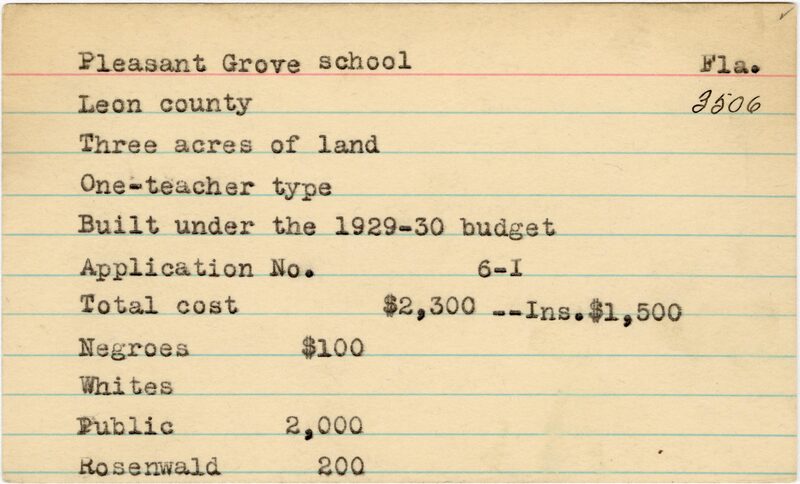 Pleasant Grove school Fla.
Leon county 3506
Three acres of land
One-teacher type
Built under the 1929-30 budget
Application No. 6-I
Total cost $2,300 --Ins.$1,500
Negroes $100
Whites
Public 2,000
Rosenwald 200